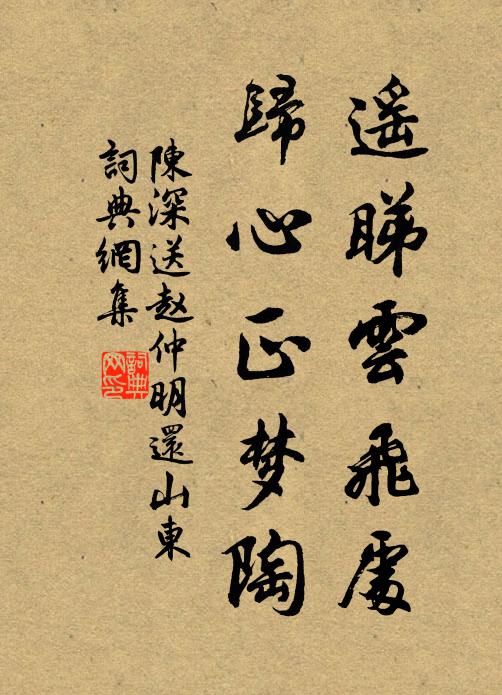 遥睇雲飛處
歸心正梦陶
陳深送赵仲明還山東
詞典網集
詞典网印